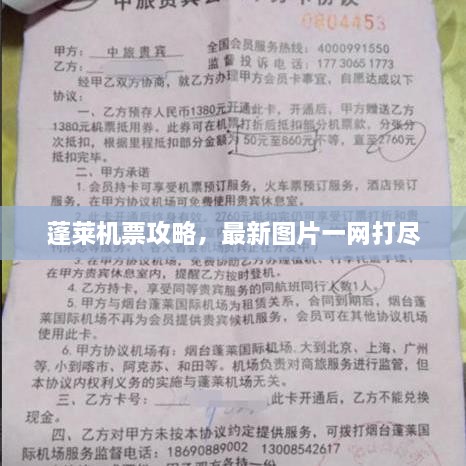 中旅贵宾
0804453
甲方:中旅贵宾 全国会员服务热线:4000991550
乙方: 监督投诉电话:177 3065 1773
经甲乙双方协商,就乙方办理甲方会员卡事宜,自愿达成以下
协议:
一、乙方预存人民币1380元开通此卡,开通后,甲方赠送乙方
1380元机票抵用券。此券可在机票打折后抵扣部分机票款,分张分
次抵扣,根据里程抵扣部分金额为50元至860元不等,直至2760元
抵扣完毕。
二、甲方承诺
1.会员持卡可享受机票预订服务,火车票预订服务,酒店预订
服务,在甲方协议机场可免费使用贵宾休息室。
蓬莱机票攻略,最新图片一网打尽
在甲方贵宾休息室内,提醒乙方按时登机。
4.乙方持卡,享受同等贵宾服务的同航班同行人数1人。
5.甲方与烟台蓬莱国际机场为租赁关系,合同到期后,烟台蓬
莱国际机场不再为会员提供贵宾候机服务,会员可在其他协议机场
使用此卡。
6.甲方协议机场有:烟台蓬莱国际机场.大到北京、上海、广州
等.小到喀什、阿克苏、和田等。机场负责对商旅服务进行监督,但
本协议内权利义务的实施与蓬莱机场无关。
三、乙方卡号: 此卡开通后,乙方不能兑换
现金。
四、乙方对甲方未按本协议约定提供服务,可拨打烟台蓬莱国
际机场服务监督电话:18690889002 13008542617